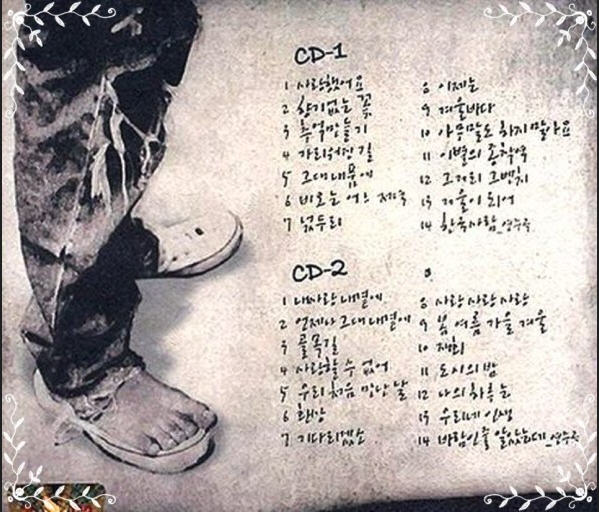 CD-1
1 사랑했어요
2 향기없는 꽃
3 추억만들기
4 가리워진 길
5 그대 내품에
6 비오는 어느 저녁
7 넋두리
8 이제는
9 겨울바다
10 아무말도 하지 말아요
11 이별의 종착역
12 그거리 그벤치
13 겨울이 되어
14 한국사람_연주곡
CD-2
1 내사랑 내곁에
2 언제나 그대 내곁에
3 골목길
4 사랑할 수 없어
5 우리 처음 만난 날
6 환상
7 기다리겠소
8 사랑 사랑 사랑
9 봄 여름 가을 겨울
10 재회
11 도시의 밤
12 나의 하루는
13 우리네 인생
14 바람인줄 알았는데_연주곡